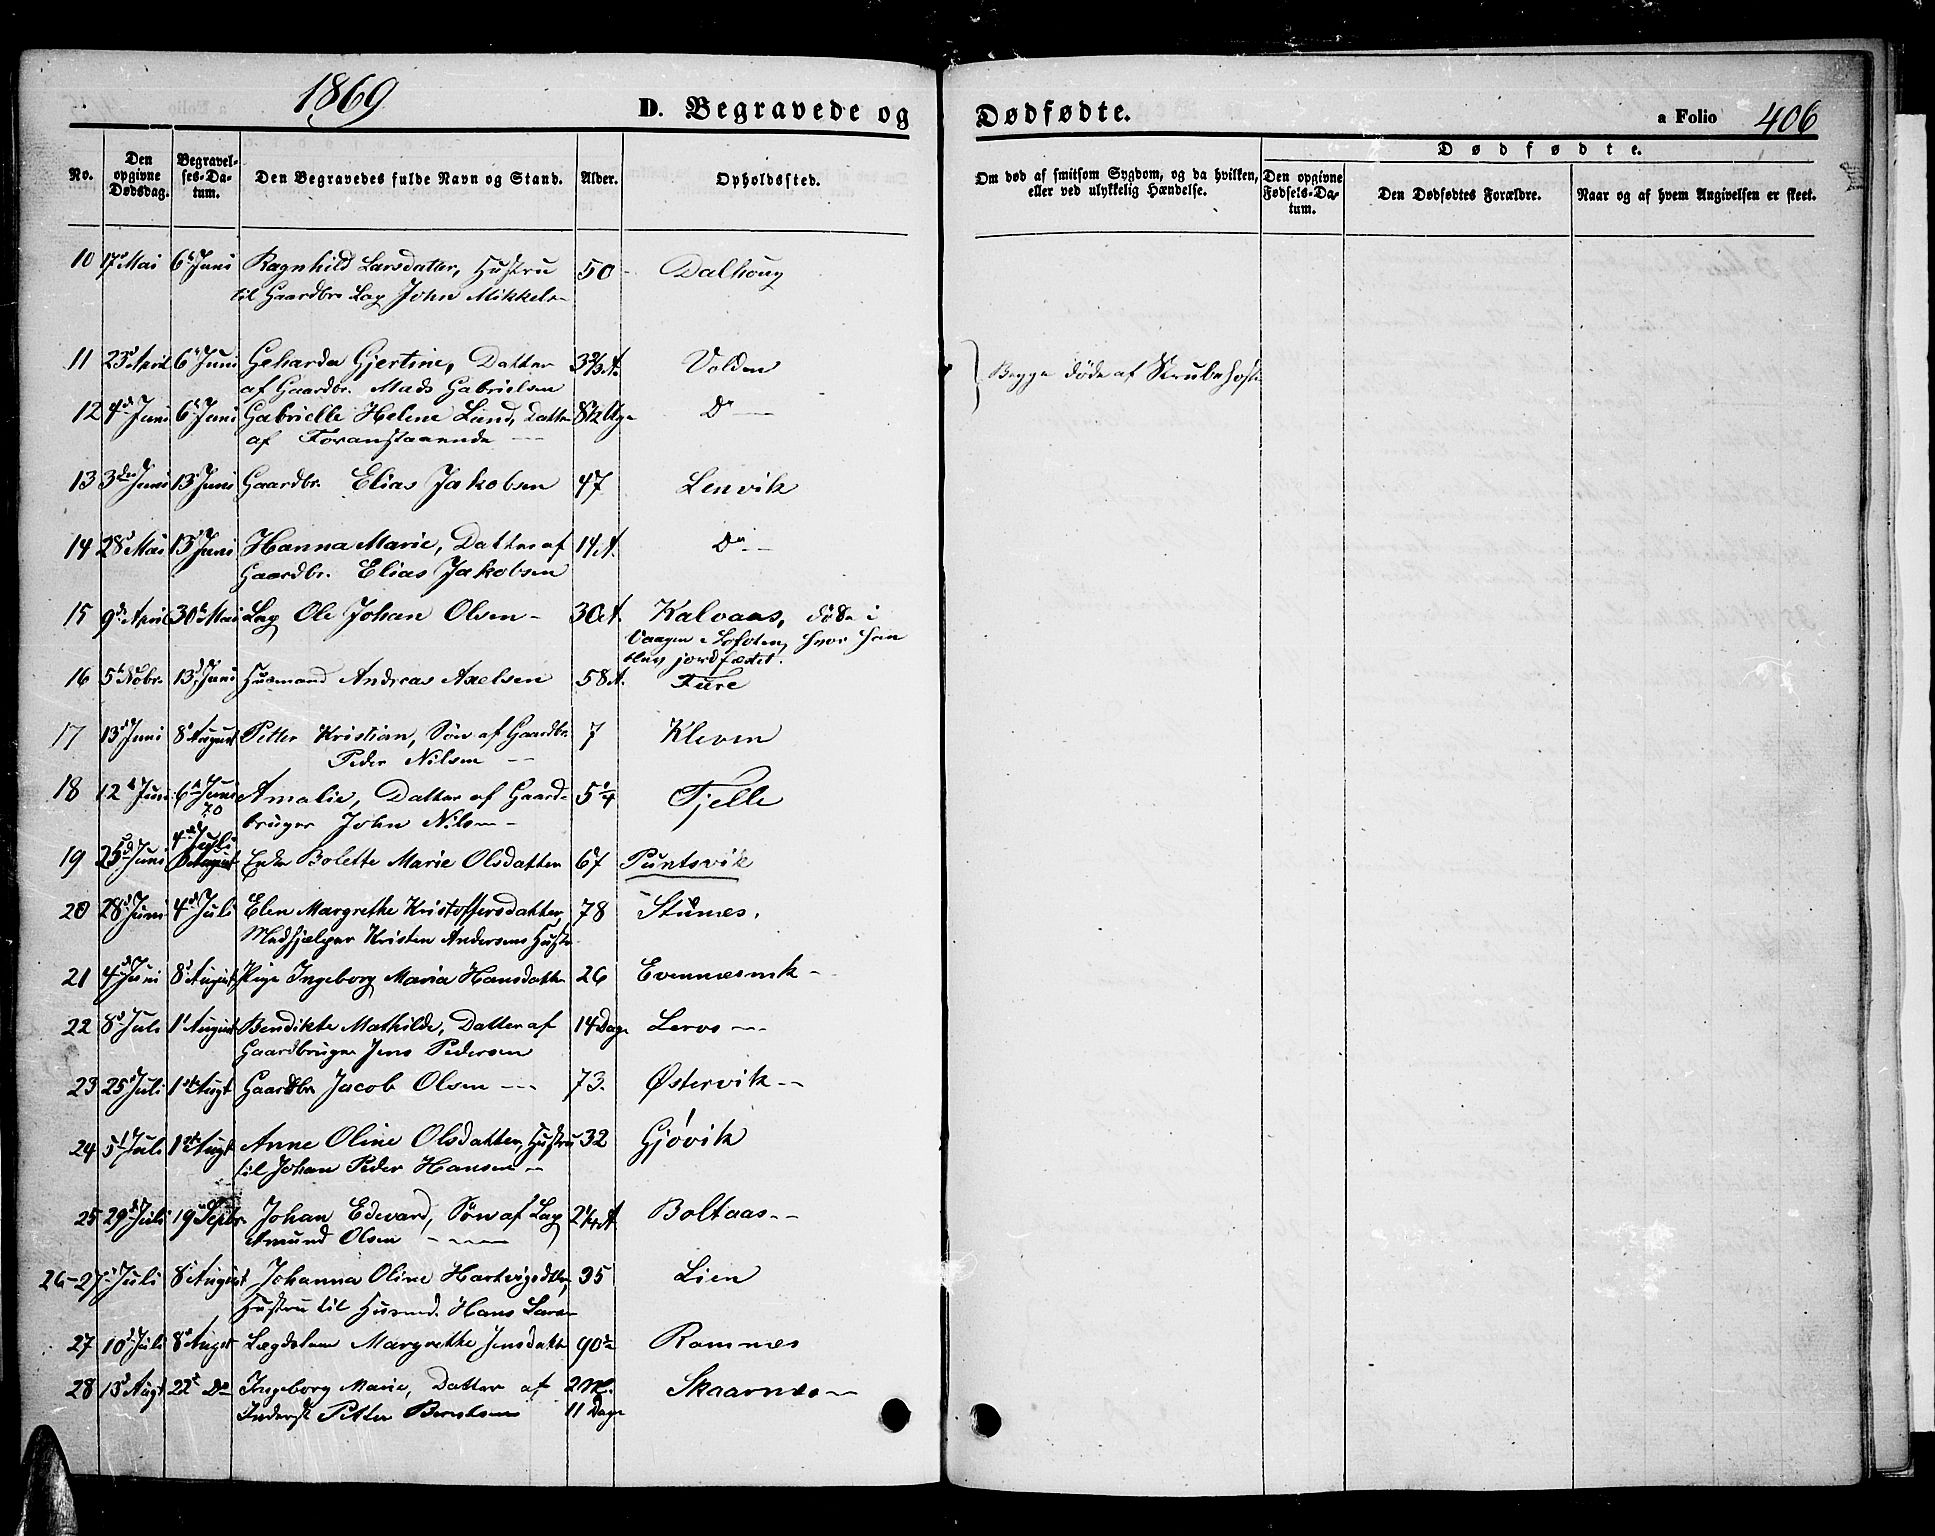 1869
D. Begravede og Dødfødte.
a Folio 406
No.
Den opgivne Dødsdag.
Begravelses-Datum.
Den Begravedes fulde Navn og Stand.
Alder.
Opholdssted.
Om død af smitsom Sygdom, og da hvilken, eller ved ulykkelig Hændelse.
Dødfødte.
Den opgivne Fødsels-Datum.
Den Dødfødtes Forældre.
Naar og af hvem Angivelsen er skeet.
10 17 Mai 6 Juni Ragnhild Larsdatter, Hustru 50 Dalhoug
til Gaardbr Lap John Mikkels
11 23 April 6 Juni Geharda Gjertine, Datter 3 A. Volden
af Gaardbr. Mads Gabrielsen
Begge døde af Strubehoste
12 4 Juni 6 Juni Gabrielle Helene Lund, Datter 8 Uge D
af Foranstaaende
13 3 Juni 13 Juni Gaardbr. Elias Jakobsen 47 Lenvik
14 28 Mai 13 Juni Hanna Marie, Datter af 14 A. D
Gaardbr. Elias Jakobsen
15 9 April 30 Mai Lap Ole Johan Olsen 30 A. Kalvaas, døde i
Vaagen i Lofoten, hvor han
blev jordfæstet.
16 5 Nobr. 13 Juni Husmand Andreas Axelsen 58 A. Fure
17 13 Juni 8 August Petter Kristian, Søn af Gaardbr. 7 Kleven
Peder Nilsen
18 12 Juni 6 Juni Amalie, Datter af Gaard- 5 1/4 Fjelle
70
bruger John Nilsen
4 Juli
19 25 Juni Enke Bolette Marie Olsdatter 67 Puntsvik
20 28 Juni 4 Juli Elen Margrethe Kristoffersdatter, 78 Stunes.
Medhjælper Kristen Andersens Hustr
21 4 Juni 8 August Pige Ingeborg Maria Hansdatte 26 Evennesmk
22 8 Juli 1 August Bendikte Mathilde, Datter af 14 Dage Leros
Gaardbruger Jens Pedersen
23 25 Juli 1 Augt Gaardbr Jacob Olsen 73. Østervik
24 5 Juli 1 Augt Anne Oline Olsdatter, Hustru 32 Gjøvik
til Johan Peder Hansen
25 29 Juli 19 Septbr. Johan Edevard, Søn af Lap 2 1/4 A. Boltaas
Amund Olsen
26 - 27 Juli 8 August Johanna Oline Hartvigsdtter, 35 Lien
Hustru til Husmd. Hans Larsen
27 10 Juli 8 Augst Lægdslem Margrethe Jensdatte 90 Ramnæs
28 13 Augt 22 Do Ingeborg Marie, Datter af 2 M. Skaarnes
Inderst Petter Berntsen 11 Dage